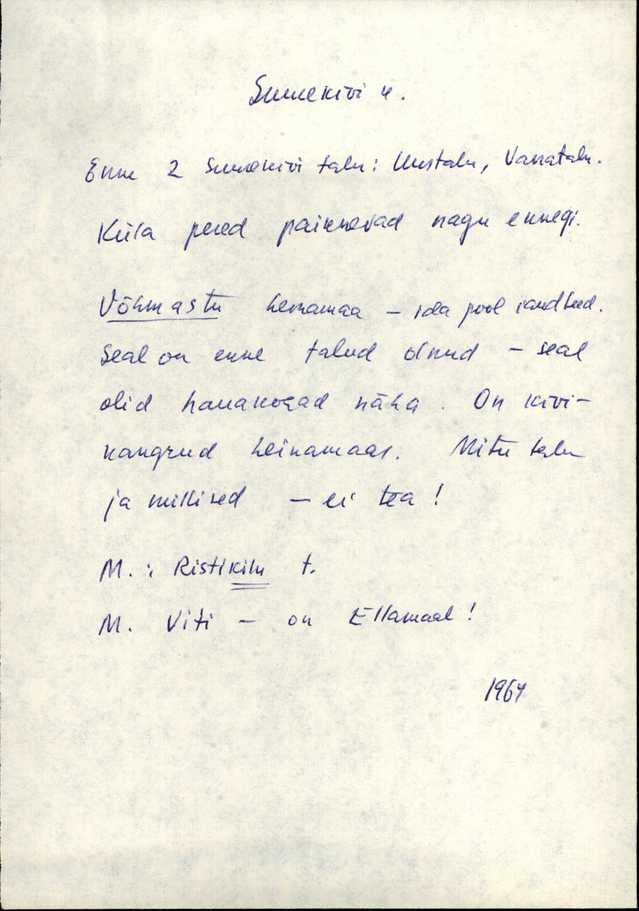 Suurekivi k.
Enne 2 Suurekivi talu: Uustalu, Vanatalu.
Küla pered paiknevad nagu ennegi.
Võhmastu heinamaa – ida pool raudteed.
Seal on enne talud olnud – seal
olid hauakohad näha. On kivi-
kangrud heinamaas. Mitu talu
ja millised – ei tea!
M.: Ristikilu t.
M. Viti – on Ellamaal!
1964